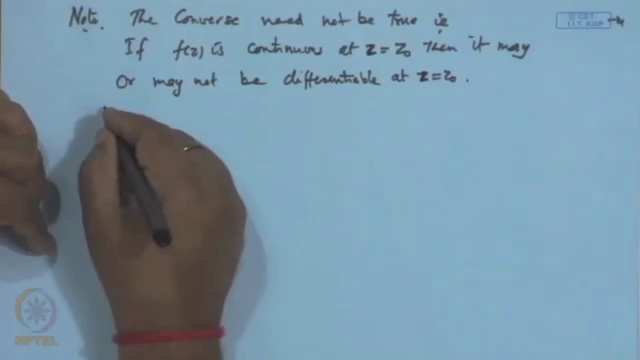 Note. The Converse need not be true ie
If f(z) is continuous at z = z₀ then it may
Or may not be differentiable at z = z₀.
© CET
I.I.T. KGP
NPTEL